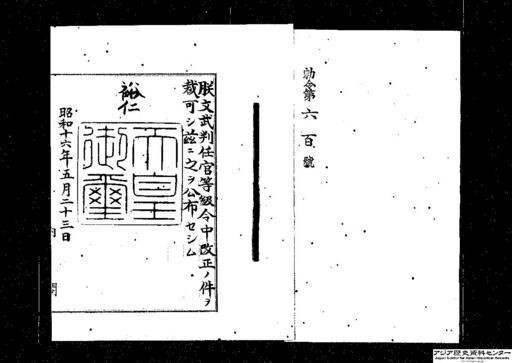 勅令第六百號
朕文武判任官等級令中改正ノ件ヲ
裁可シ茲ニ之ヲ公布セシム
裕仁
天皇
御璽
昭和十六年五月二十三日
アジア歴史資料センター
Japan Center for Asian Historical Records